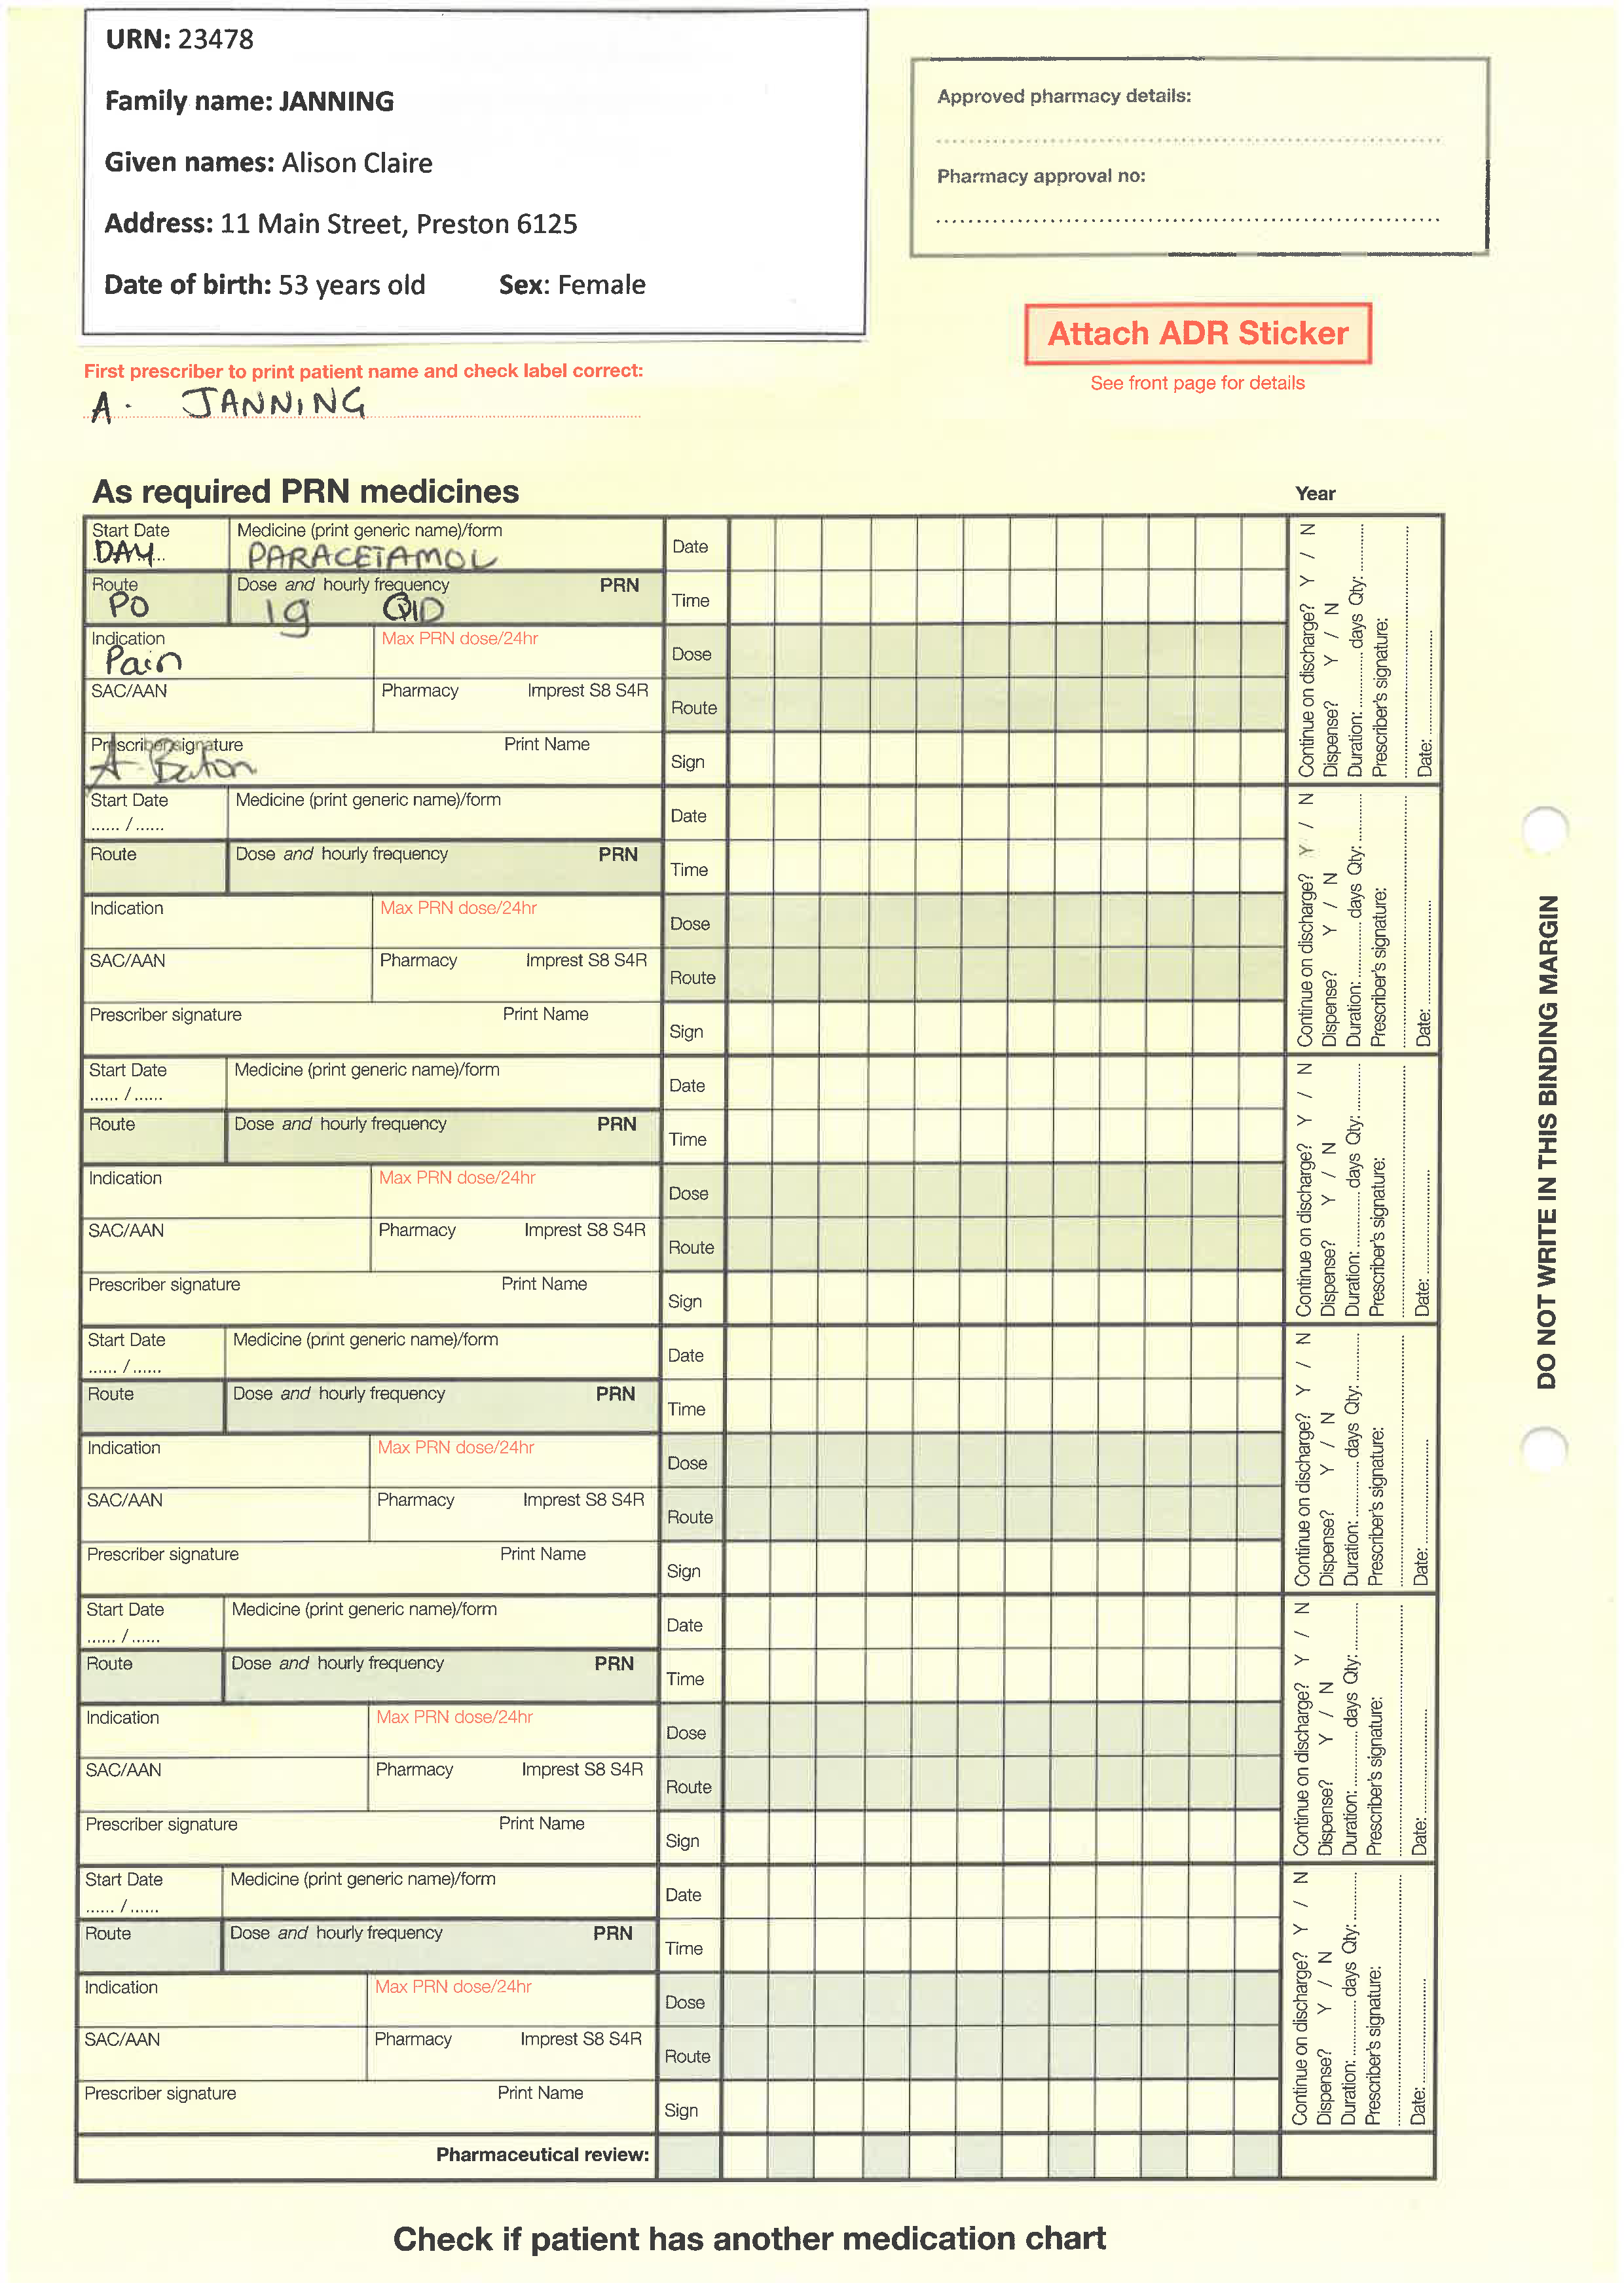 URN: 23478
Family name: JANNING
Given names: Alison Claire
Address: 11 Main Street, Preston 6125
Date of birth: 53 years old Sex: Female
Approved pharmacy details:
Pharmacy approval no:
Attach ADR Sticker
See front page for details
First prescriber to print patient name and check label correct:
A. JANNING
As required PRN medicines
Year
Start Date Medicine (print generic name)/form Date
DAY PARACETAMOL
Route Dose and hourly frequency PRN Time
PO 1g QID
Indication Max PRN dose/24hr Dose
Pain
SAC/AAN Pharmacy Imprest S8 S4R Route
Prescriber signature Print Name Sign
A
Continue on discharge? Y / N
Dispense? Y / N
Duration: ........ days Qty: ........
Prescriber's signature:
Date: ........
Start Date Medicine (print generic name)/form Date
...... / ......
Route Dose and hourly frequency PRN Time
Indication Max PRN dose/24hr Dose
SAC/AAN Pharmacy Imprest S8 S4R Route
Prescriber signature Print Name Sign
Continue on discharge? Y / N
Dispense? Y / N
Duration: ........ days Qty: ........
Prescriber's signature:
Date: ........
Start Date Medicine (print generic name)/form Date
...... / ......
Route Dose and hourly frequency PRN Time
Indication Max PRN dose/24hr Dose
SAC/AAN Pharmacy Imprest S8 S4R Route
Prescriber signature Print Name Sign
Continue on discharge? Y / N
Dispense? Y / N
Duration: ........ days Qty: ........
Prescriber's signature:
Date: ........
Start Date Medicine (print generic name)/form Date
...... / ......
Route Dose and hourly frequency PRN Time
Indication Max PRN dose/24hr Dose
SAC/AAN Pharmacy Imprest S8 S4R Route
Prescriber signature Print Name Sign
Continue on discharge? Y / N
Dispense? Y / N
Duration: ........ days Qty: ........
Prescriber's signature:
Date: ........
Start Date Medicine (print generic name)/form Date
...... / ......
Route Dose and hourly frequency PRN Time
Indication Max PRN dose/24hr Dose
SAC/AAN Pharmacy Imprest S8 S4R Route
Prescriber signature Print Name Sign
Continue on discharge? Y / N
Dispense? Y / N
Duration: ........ days Qty: ........
Prescriber's signature:
Date: ........
Start Date Medicine (print generic name)/form Date
...... / ......
Route Dose and hourly frequency PRN Time
Indication Max PRN dose/24hr Dose
SAC/AAN Pharmacy Imprest S8 S4R Route
Prescriber signature Print Name Sign
Continue on discharge? Y / N
Dispense? Y / N
Duration: ........ days Qty: ........
Prescriber's signature:
Date: ........
Pharmaceutical review:
DO NOT WRITE IN THIS BINDING MARGIN
Check if patient has another medication chart